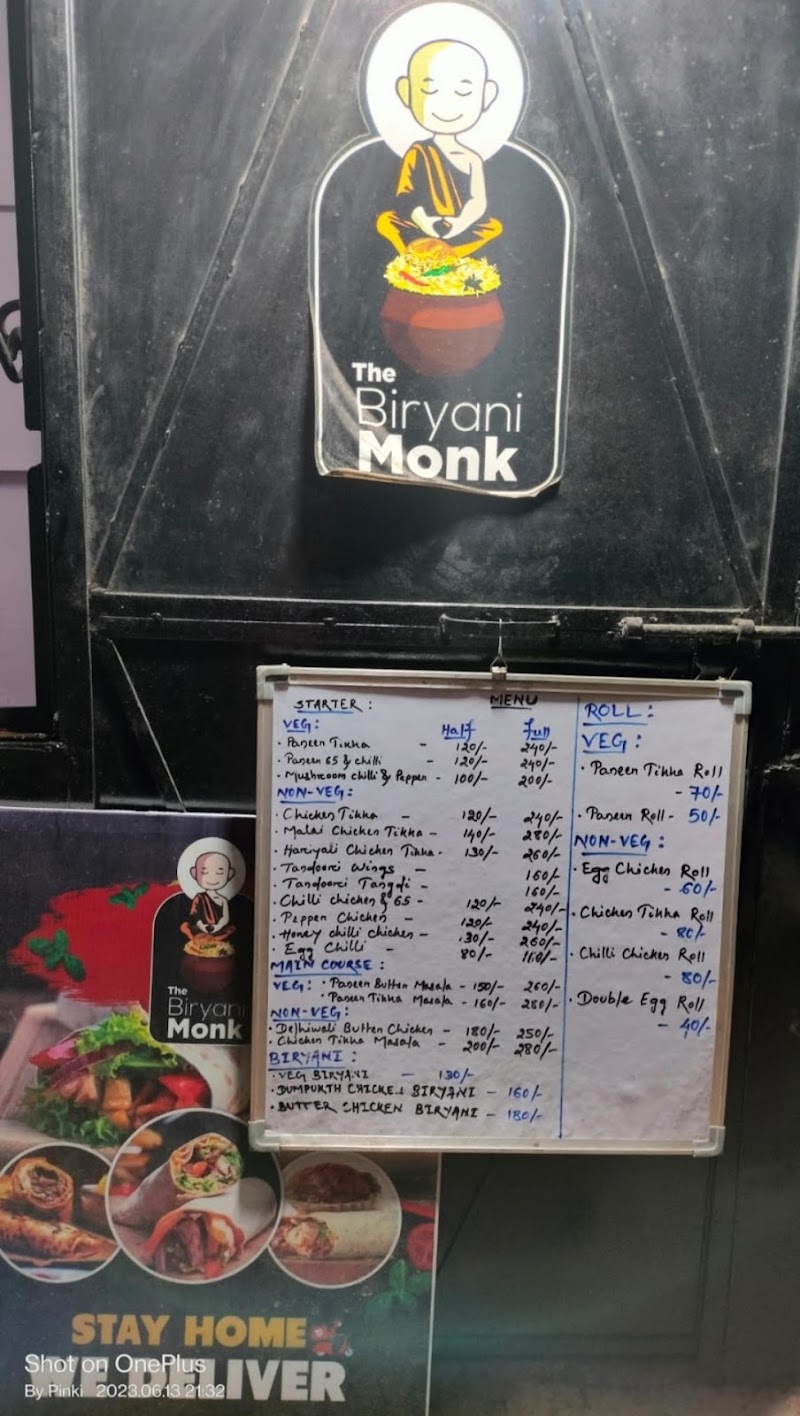 The
Biryani
Monk
MENU
STARTER :
VEG : Half Full
· Paneer Tikka - 120/- 240/-
· Paneer 65 & chilli - 120/- 240/-
· Mushroom chilli & Pepper - 100/- 200/-
NON-VEG :
· Chicken Tikka - 120/- 240/-
· Malai Chicken Tikka - 140/- 280/-
· Hariyali Chicken Tikka - 130/- 260/-
· Tandoori Wings - 160/-
· Tandoori Tangdi - 160/-
· Chilli chicken & 65 - 120/- 240/-
· Pepper Chicken - 120/- 240/-
· Honey chilli chicken - 130/- 260/-
· Egg Chilli - 80/- 160/-
MAIN COURSE :
VEG : · Paneer Butter Masala - 150/- 260/-
· Paneer Tikka Masala - 160/- 280/-
NON-VEG :
· Delhiwali Butter Chicken - 180/- 250/-
· Chicken Tikka Masala - 200/- 280/-
BIRYANI :
· VEG BIRYANI - 130/-
· DUMPUKTH CHICKEN BIRYANI - 160/-
· BUTTER CHICKEN BIRYANI - 180/-
ROLL :
VEG :
· Paneer Tikka Roll
- 70/-
· Paneer Roll - 50/-
NON-VEG :
· Egg Chicken Roll
- 60/-
· Chicken Tikka Roll
- 80/-
· Chilli Chicken Roll
- 80/-
· Double Egg Roll
- 40/-
The
Biryani
Monk
STAY HOME
WE DELIVER
Shot on OnePlus
By Pinki 2023.06.13 21:32